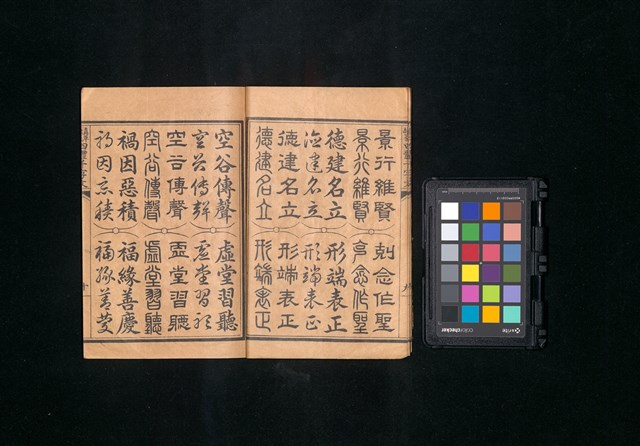 景行維賢 剋念作聖
景行維賢 剋念作聖
德建名立 形端表正
德建名立 形端表正
德建名立 形端表正
德建名立 形端表正
空谷傳聲 虛堂習聽
空谷傳聲 虛堂習聽
空谷傳聲 虛堂習聽
空谷傳聲 虛堂習聽
禍因惡積 福緣善慶
禍因惡積 福緣善慶
colorchecker
x-rite